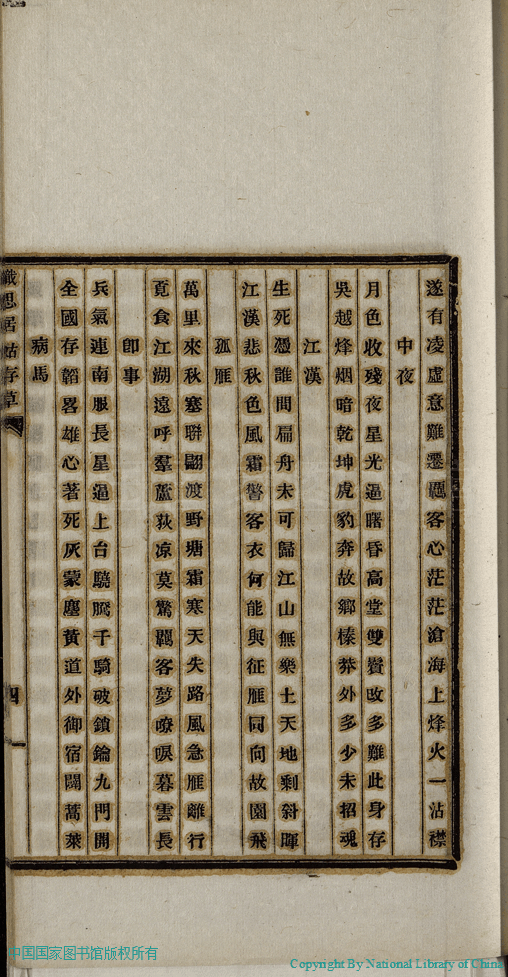 遂有凌虛意難遷羈客心茫茫滄海上烽火一沾襟
中夜
月色收殘夜星光逼曙昏高堂雙鬢改多難此身存
吳越烽烟暗乾坤虎豹奔故鄉榛莽外多少未招魂
江漢
生死憑誰問扁舟未可歸江山無樂土天地剩斜暉
江漢悲秋色風霜警客衣何能與征雁同向故園飛
孤雁
萬里來秋塞聯翩渡野塘霜寒天失路風急雁離行
覓食江湖遠呼羣蘆荻凉莫驚羈客夢嘹唳暮雲長
卽事
兵氣連南服長星逼上台驍騰千騎破鎖鑰九門開
全國存韜畧雄心著死灰蒙塵黃道外御宿闢蒿萊
病馬
思居
存草
四
中国国家图书馆版权所有
Copyright By National Library of China